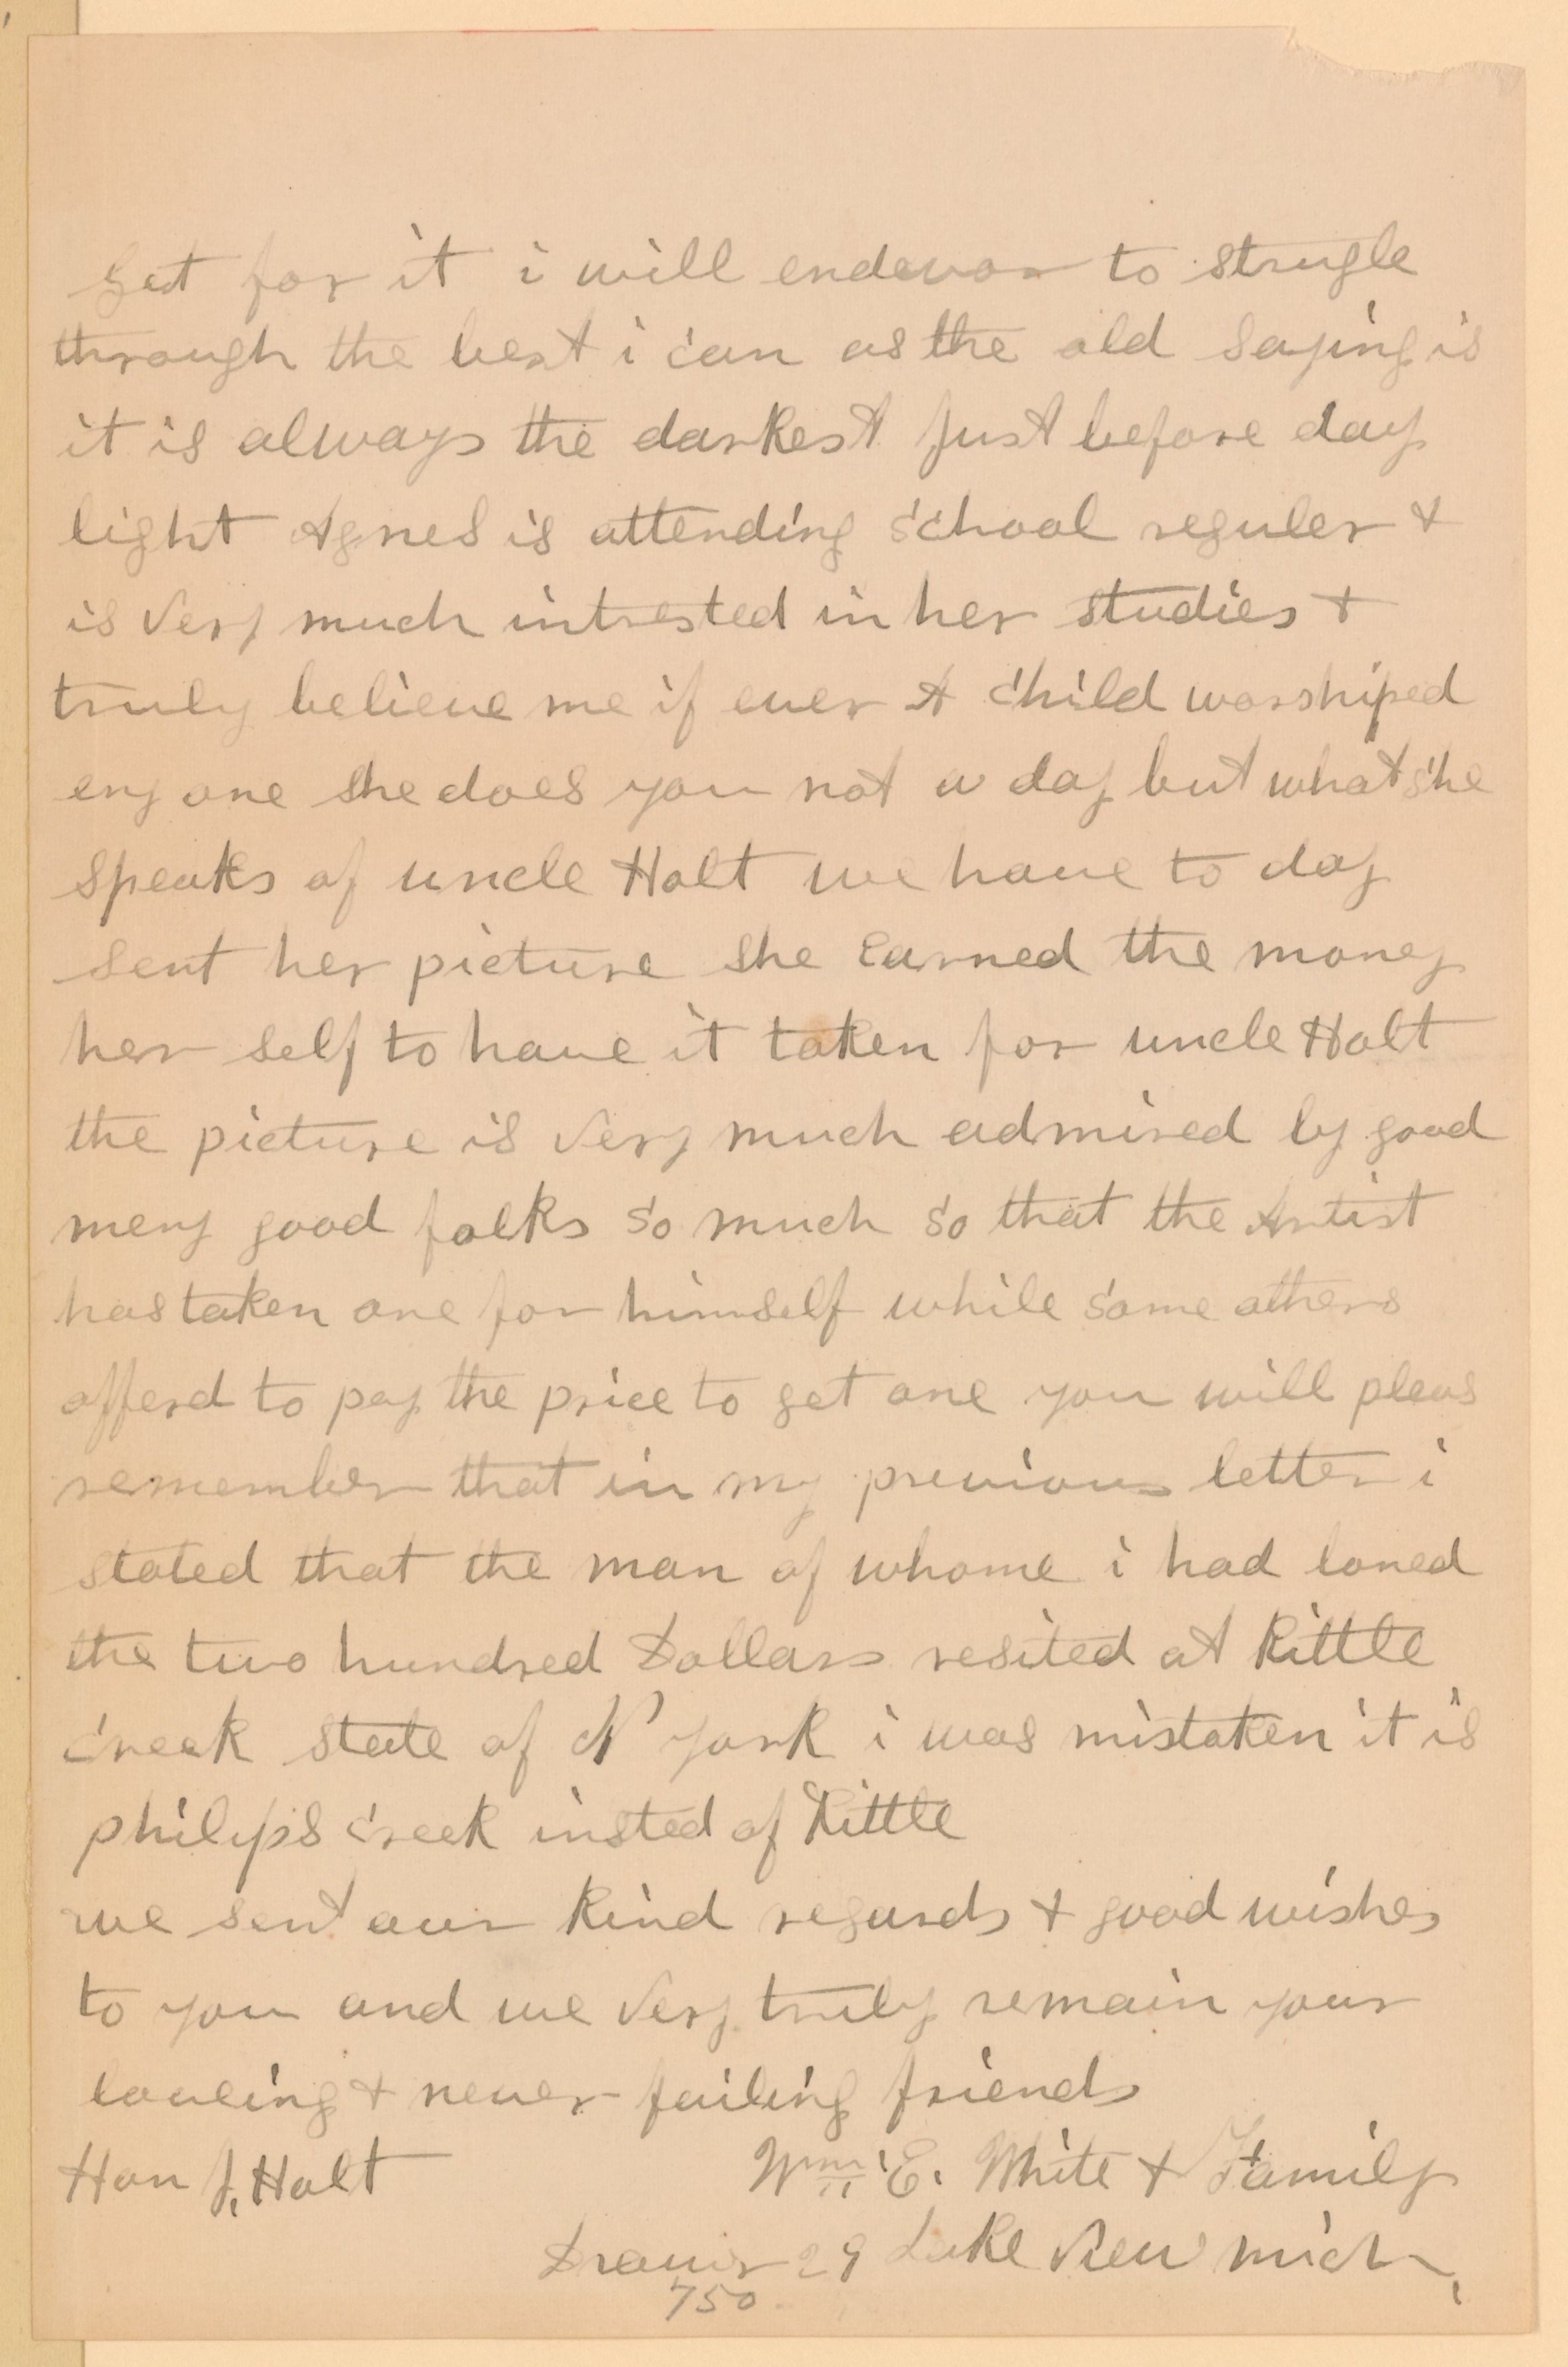 get for it i will endevor to strugle
through the best i can as the old saying is
it is always the darkest just before day
light Agnes is attending school reguler &
is very much intrested in her studies &
truly believe me if ever A child worshiped
eny one she does you not a day but what she
speaks of uncle Holt we have to day
sent her picture she earned the money
her self to have it taken for uncle Holt
the picture is very much admired by good
meny good folks so much so that the Artist
has taken one for himself while some others
offerd to pay the price to get one you will pleas
remember that in my previous letter i
stated that the man of whome i had loned
the two hundred Dollars resited at Kittle
creek state of N york i was mistaken it is
philips creek insted of Kittle
we sent our kind regards & good wishes
to you and we very truly remain your
loveing & never failing friends
Hon J. Holt Wm E. White & Family
Drawer 29 Lake View mich
750